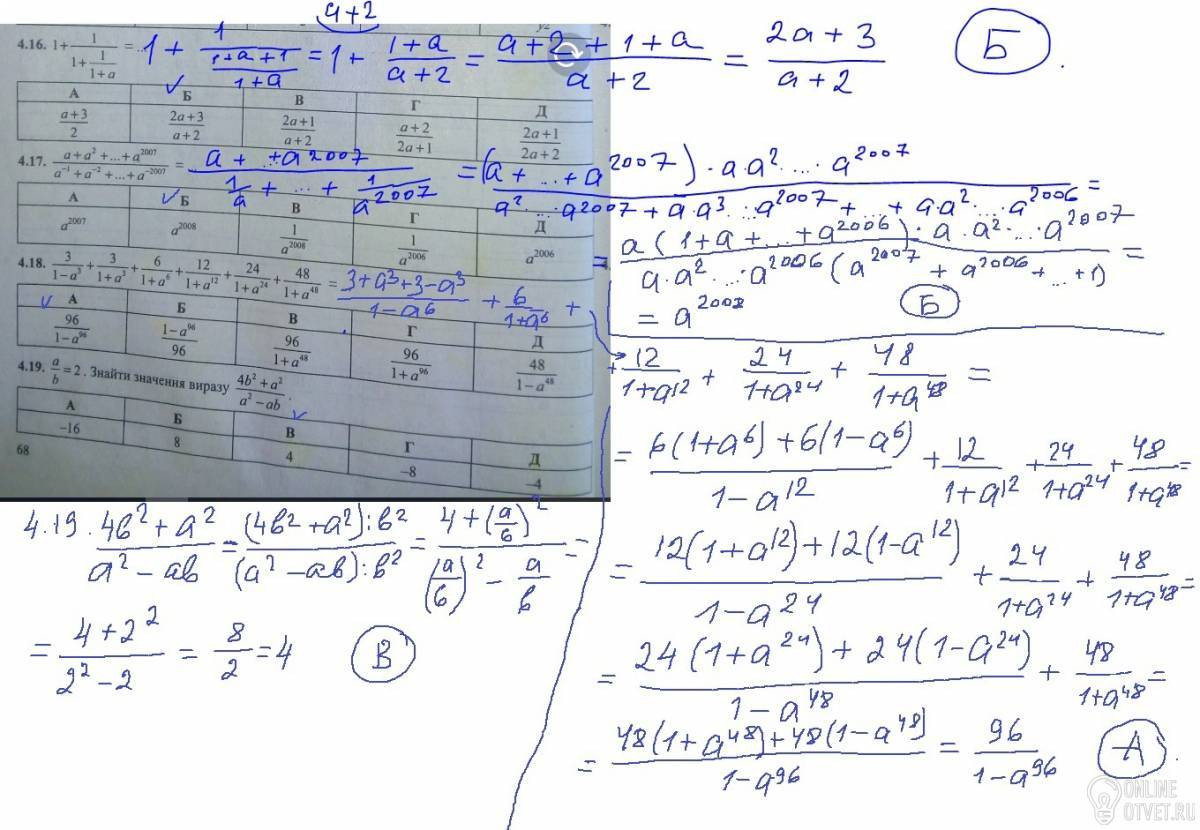 4.16. 1 + 1/(1 + 1/(1+a)) = 1 + 1/((1+a+1)/(1+a)) = 1 + (1+a)/(a+2) = (a+2+1+a)/(a+2) = (2a+3)/(a+2) Б.
a+2
А ✓Б В Г Д
(a+3)/2 (2a+3)/(a+2) (2a+1)/(a+2) (a+2)/(2a+1) (2a+1)/(2a+2)
4.17. (a + a² + ... + a²⁰⁰⁷)/(a⁻¹ + a⁻² + ... + a⁻²⁰⁰⁷) = (a + ... + a²⁰⁰⁷)/(1/a + ... + 1/a²⁰⁰⁷) = ((a + ... + a²⁰⁰⁷)·a·a²·...·a²⁰⁰⁷)/(a²·...·a²⁰⁰⁷ + a·a³·...·a²⁰⁰⁷ + ... + a·a²·...·a²⁰⁰⁶) =
= (a(1 + a + ... + a²⁰⁰⁶)·a·a²·...·a²⁰⁰⁷)/(a·a²·...·a²⁰⁰⁶(a²⁰⁰⁷ + a²⁰⁰⁶ + ... + 1)) =
= a²⁰⁰⁸ Б
А ✓Б В Г Д
a²⁰⁰⁷ a²⁰⁰⁸ 1/a²⁰⁰⁸ 1/a²⁰⁰⁶ a²⁰⁰⁶
4.18. 3/(1−a³) + 3/(1+a³) + 6/(1+a⁶) + 12/(1+a¹²) + 24/(1+a²⁴) + 48/(1+a⁴⁸) = (3+a³+3−a³)/(1−a⁶) + 6/(1+a⁶) +
+ 12/(1+a¹²) + 24/(1+a²⁴) + 48/(1+a⁴⁸) =
= (6(1+a⁶) + 6(1−a⁶))/(1−a¹²) + 12/(1+a¹²) + 24/(1+a²⁴) + 48/(1+a⁴⁸) =
= (12(1+a¹²) + 12(1−a¹²))/(1−a²⁴) + 24/(1+a²⁴) + 48/(1+a⁴⁸) =
= (24(1+a²⁴) + 24(1−a²⁴))/(1−a⁴⁸) + 48/(1+a⁴⁸) =
= (48(1+a⁴⁸) + 48(1−a⁴⁸))/(1−a⁹⁶) = 96/(1−a⁹⁶) А.
✓А Б В Г Д
96/(1−a⁹⁶) (1−a⁹⁶)/96 96/(1+a⁴⁸) 96/(1+a⁹⁶) 48/(1−a⁴⁸)
4.19. a/b = 2. Знайти значення виразу (4b² + a²)/(a² − ab).
А Б ✓В Г Д
−16 8 4 −8 −4
68
4.19. (4b² + a²)/(a² − ab) = ((4b² + a²):b²)/((a² − ab):b²) = (4 + (a/b)²)/((a/b)² − a/b) =
= (4 + 2²)/(2² − 2) = 8/2 = 4 В
ONLINE
OTVET.RU